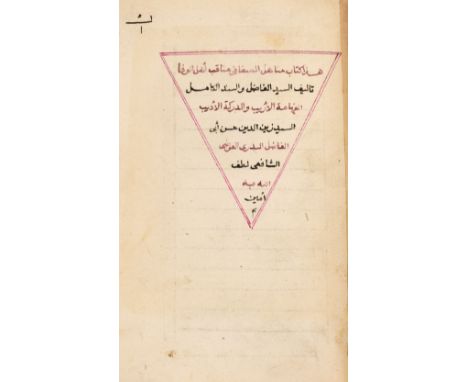 هذا كتاب مناهل الصفا في مناقب آل الوفا
تاليف السيد الفاضل والسند الكامل
العلامة الأريب والدركة الأديب
السيد زين الدين حسن أبي
الفاضل البدري العوضي
الشافعي لطف
الله به
أمين
م